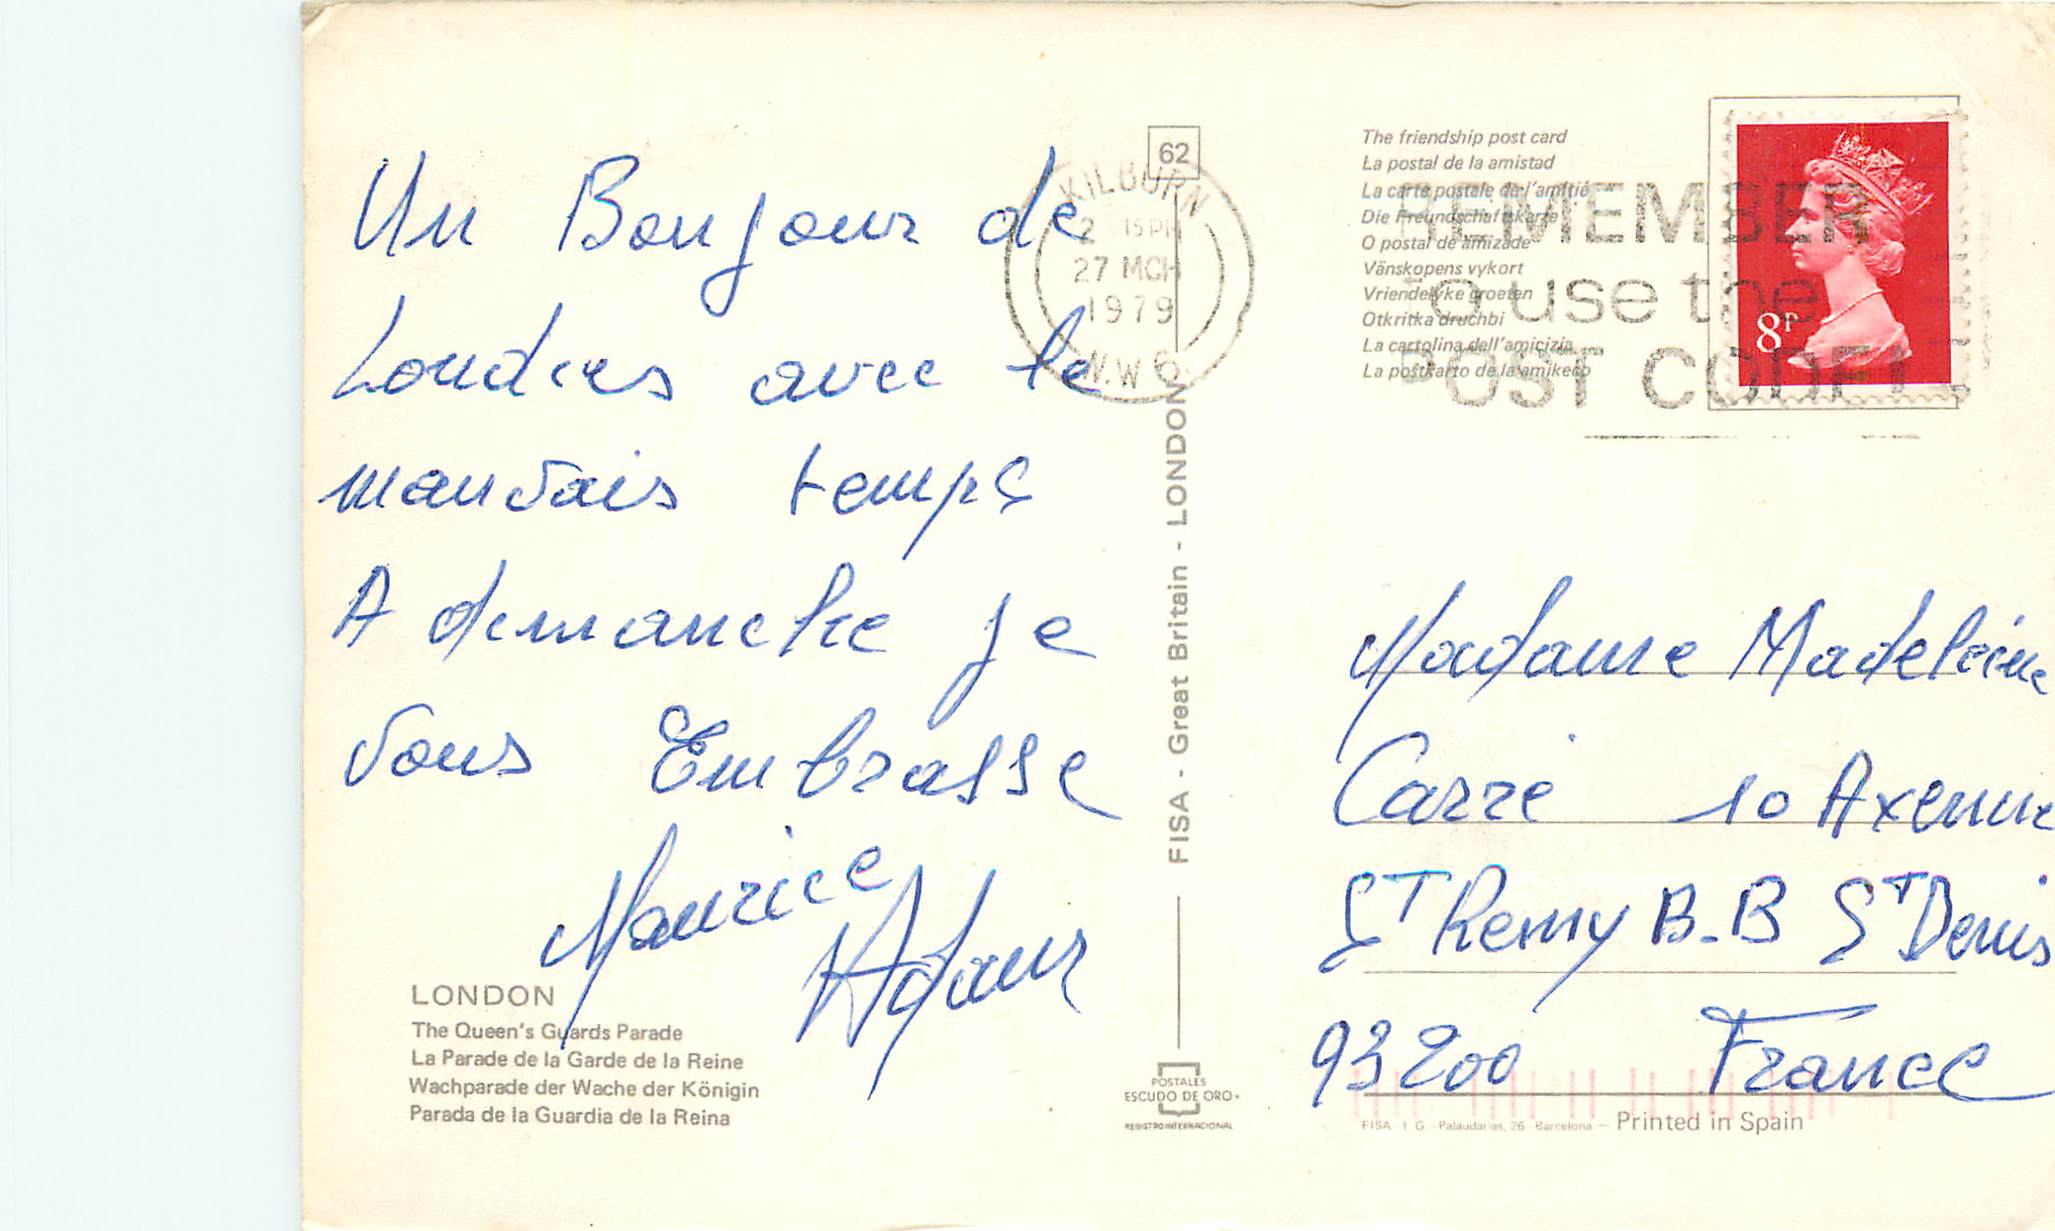 Un Bonjour de
Londres avec le
mauvais temps
A dimanche je
vous Embrasse
Maurice
Adam
LONDON
The Queen's Guards Parade
La Parade de la Garde de la Reine
Wachparade der Wache der Königin
Parada de la Guardia de la Reina
62
KILBURN
2 15 PM
27 MCH
1979
N.W 6
FISA - Great Britain - LONDON
POSTALES
ESCUDO DE ORO
REGISTRO INTERNACIONAL
The friendship post card
La postal de la amistad
La carte postale de l'amitié
Die Freundschaftskarte
O postal de amizade
Vänskapens vykort
Vriendelyke groeten
Otkritka druchbi
La cartolina dell'amicizia
La postkarto de la amikeco
REMEMBER
to use the
POST CODE
8P
Madame Madeleine
Carré 10 Avenue
ST Remy B.B ST Denis
93200 France
FISA - I. G. - Palaudarias, 26 - Barcelona — Printed in Spain